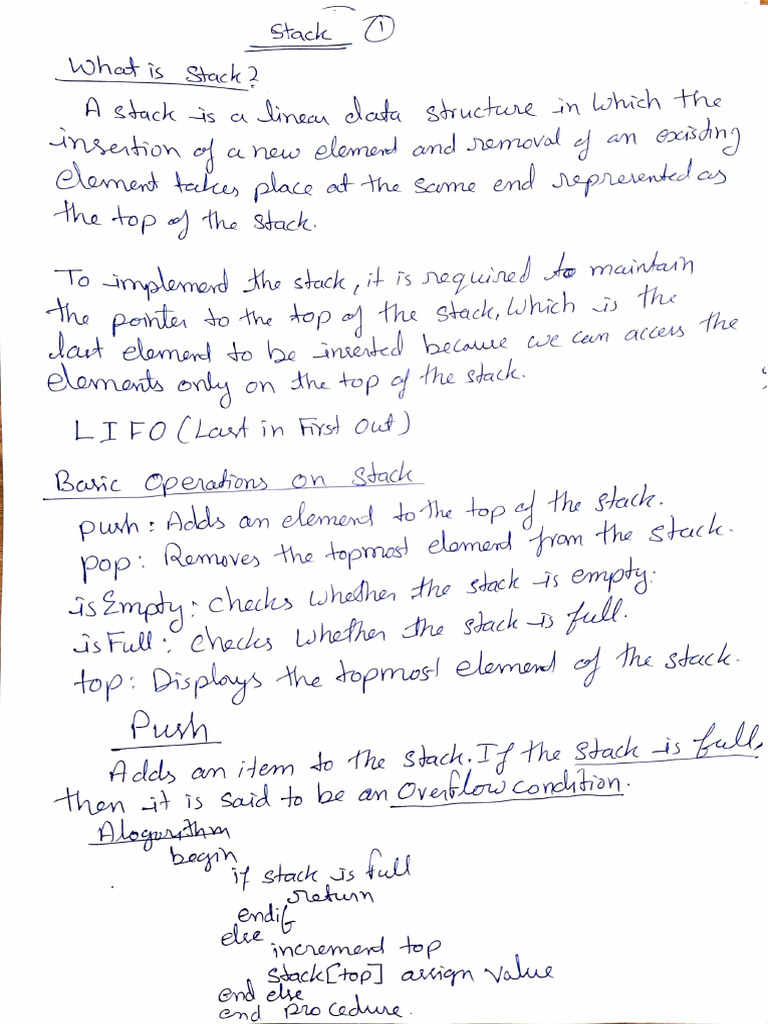 Stack ①
What is Stack?
A stack is a linear data structure in which the
insertion of a new element and removal of an existing
element takes place at the same end represented as
the top of the stack.
To implement the stack, it is required to maintain
the pointer to the top of the stack, which is the
last element to be inserted because we can access the
elements only on the top of the stack.
LIFO (Last in First Out)
Basic Operations on Stack
push: Adds an element to the top of the stack.
pop: Removes the topmost element from the stack.
isEmpty: checks whether the stack is empty.
isFull: checks whether the stack is full.
top: Displays the topmost element of the stack.
Push
Adds an item to the stack. If the stack is full,
then it is said to be an Overflow condition.
Alogorithm
begin
if stack is full
return
endif
else
increment top
stack[top] assign value
end else
end procedure.